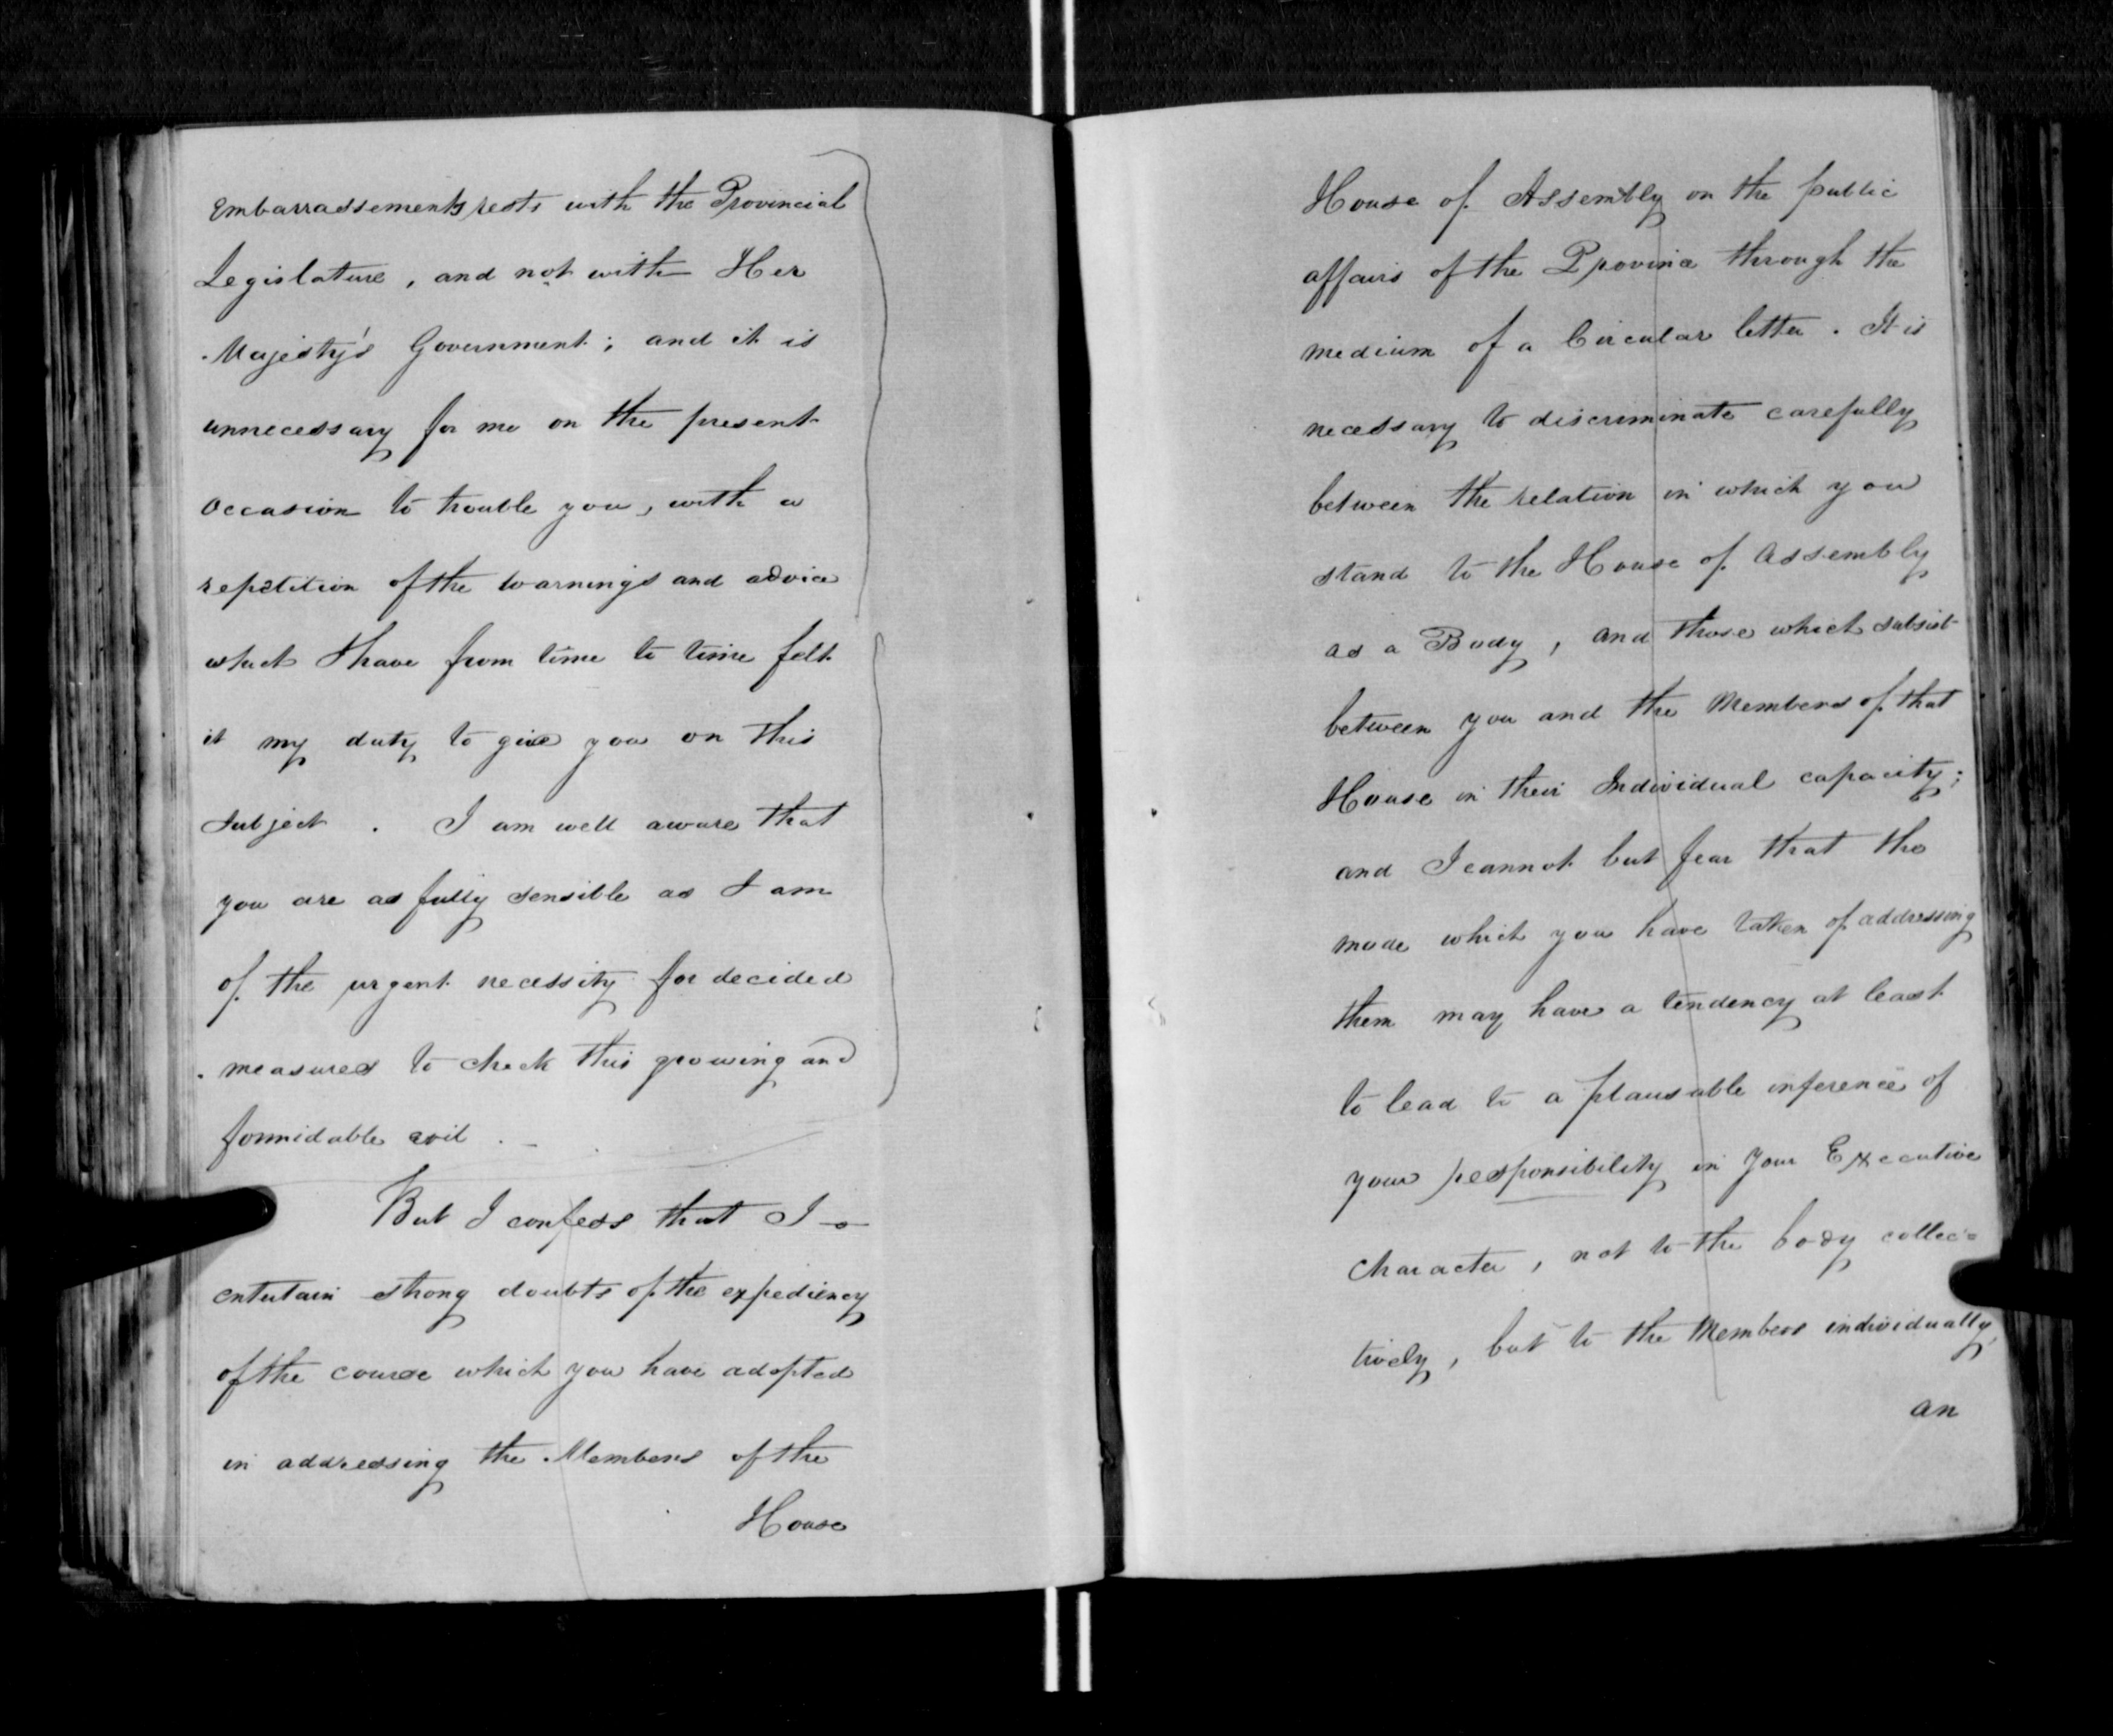 Embarrassements rests with the Provincial
Legislature, and not with Her
Majesty's Government; and it is
unnecessary for me on the present
occasion to trouble you, with a
repetition of the warnings and advice
which I have from time to time felt
it my duty to give you on this
subject. I am well aware that
you are as fully sensible as I am
of the urgent necessity for decided
measures to check this growing and
formidable evil. -
But I confess that I -
entertain strong doubts of the expediency
of the course which you have adopted
in addressing the Members of the
House
House of Assembly on the public
affairs of the Province through the
medium of a Circular letter. It is
necessary to discriminate carefully
between the relation in which you
stand to the House of Assembly
as a Body, and those which subsist
between you and the Members of that
House in their Individual capacity;
and I cannot but fear that the
mode which you have taken of addressing
them may have a tendency at least
to lead to a plausable inference of
your responsibility in your Executive
Character, not to the body collec=
tively, but to the Members individually,
an